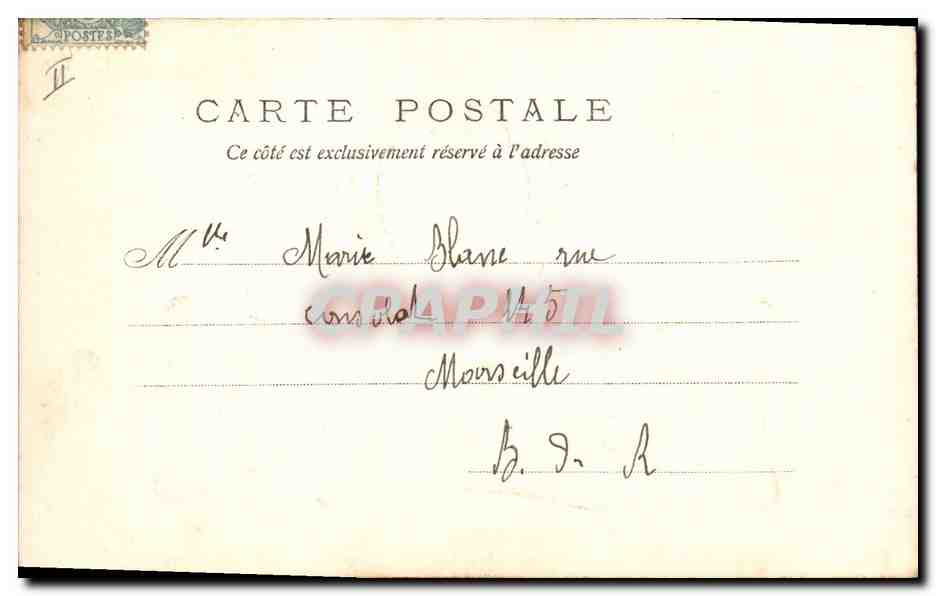 POSTES
II
CARTE POSTALE
Ce côté est exclusivement réservé à l'adresse
Mlle Marie Blanc rue
consolat 145
Marseille
B. du R
CPAPHIL